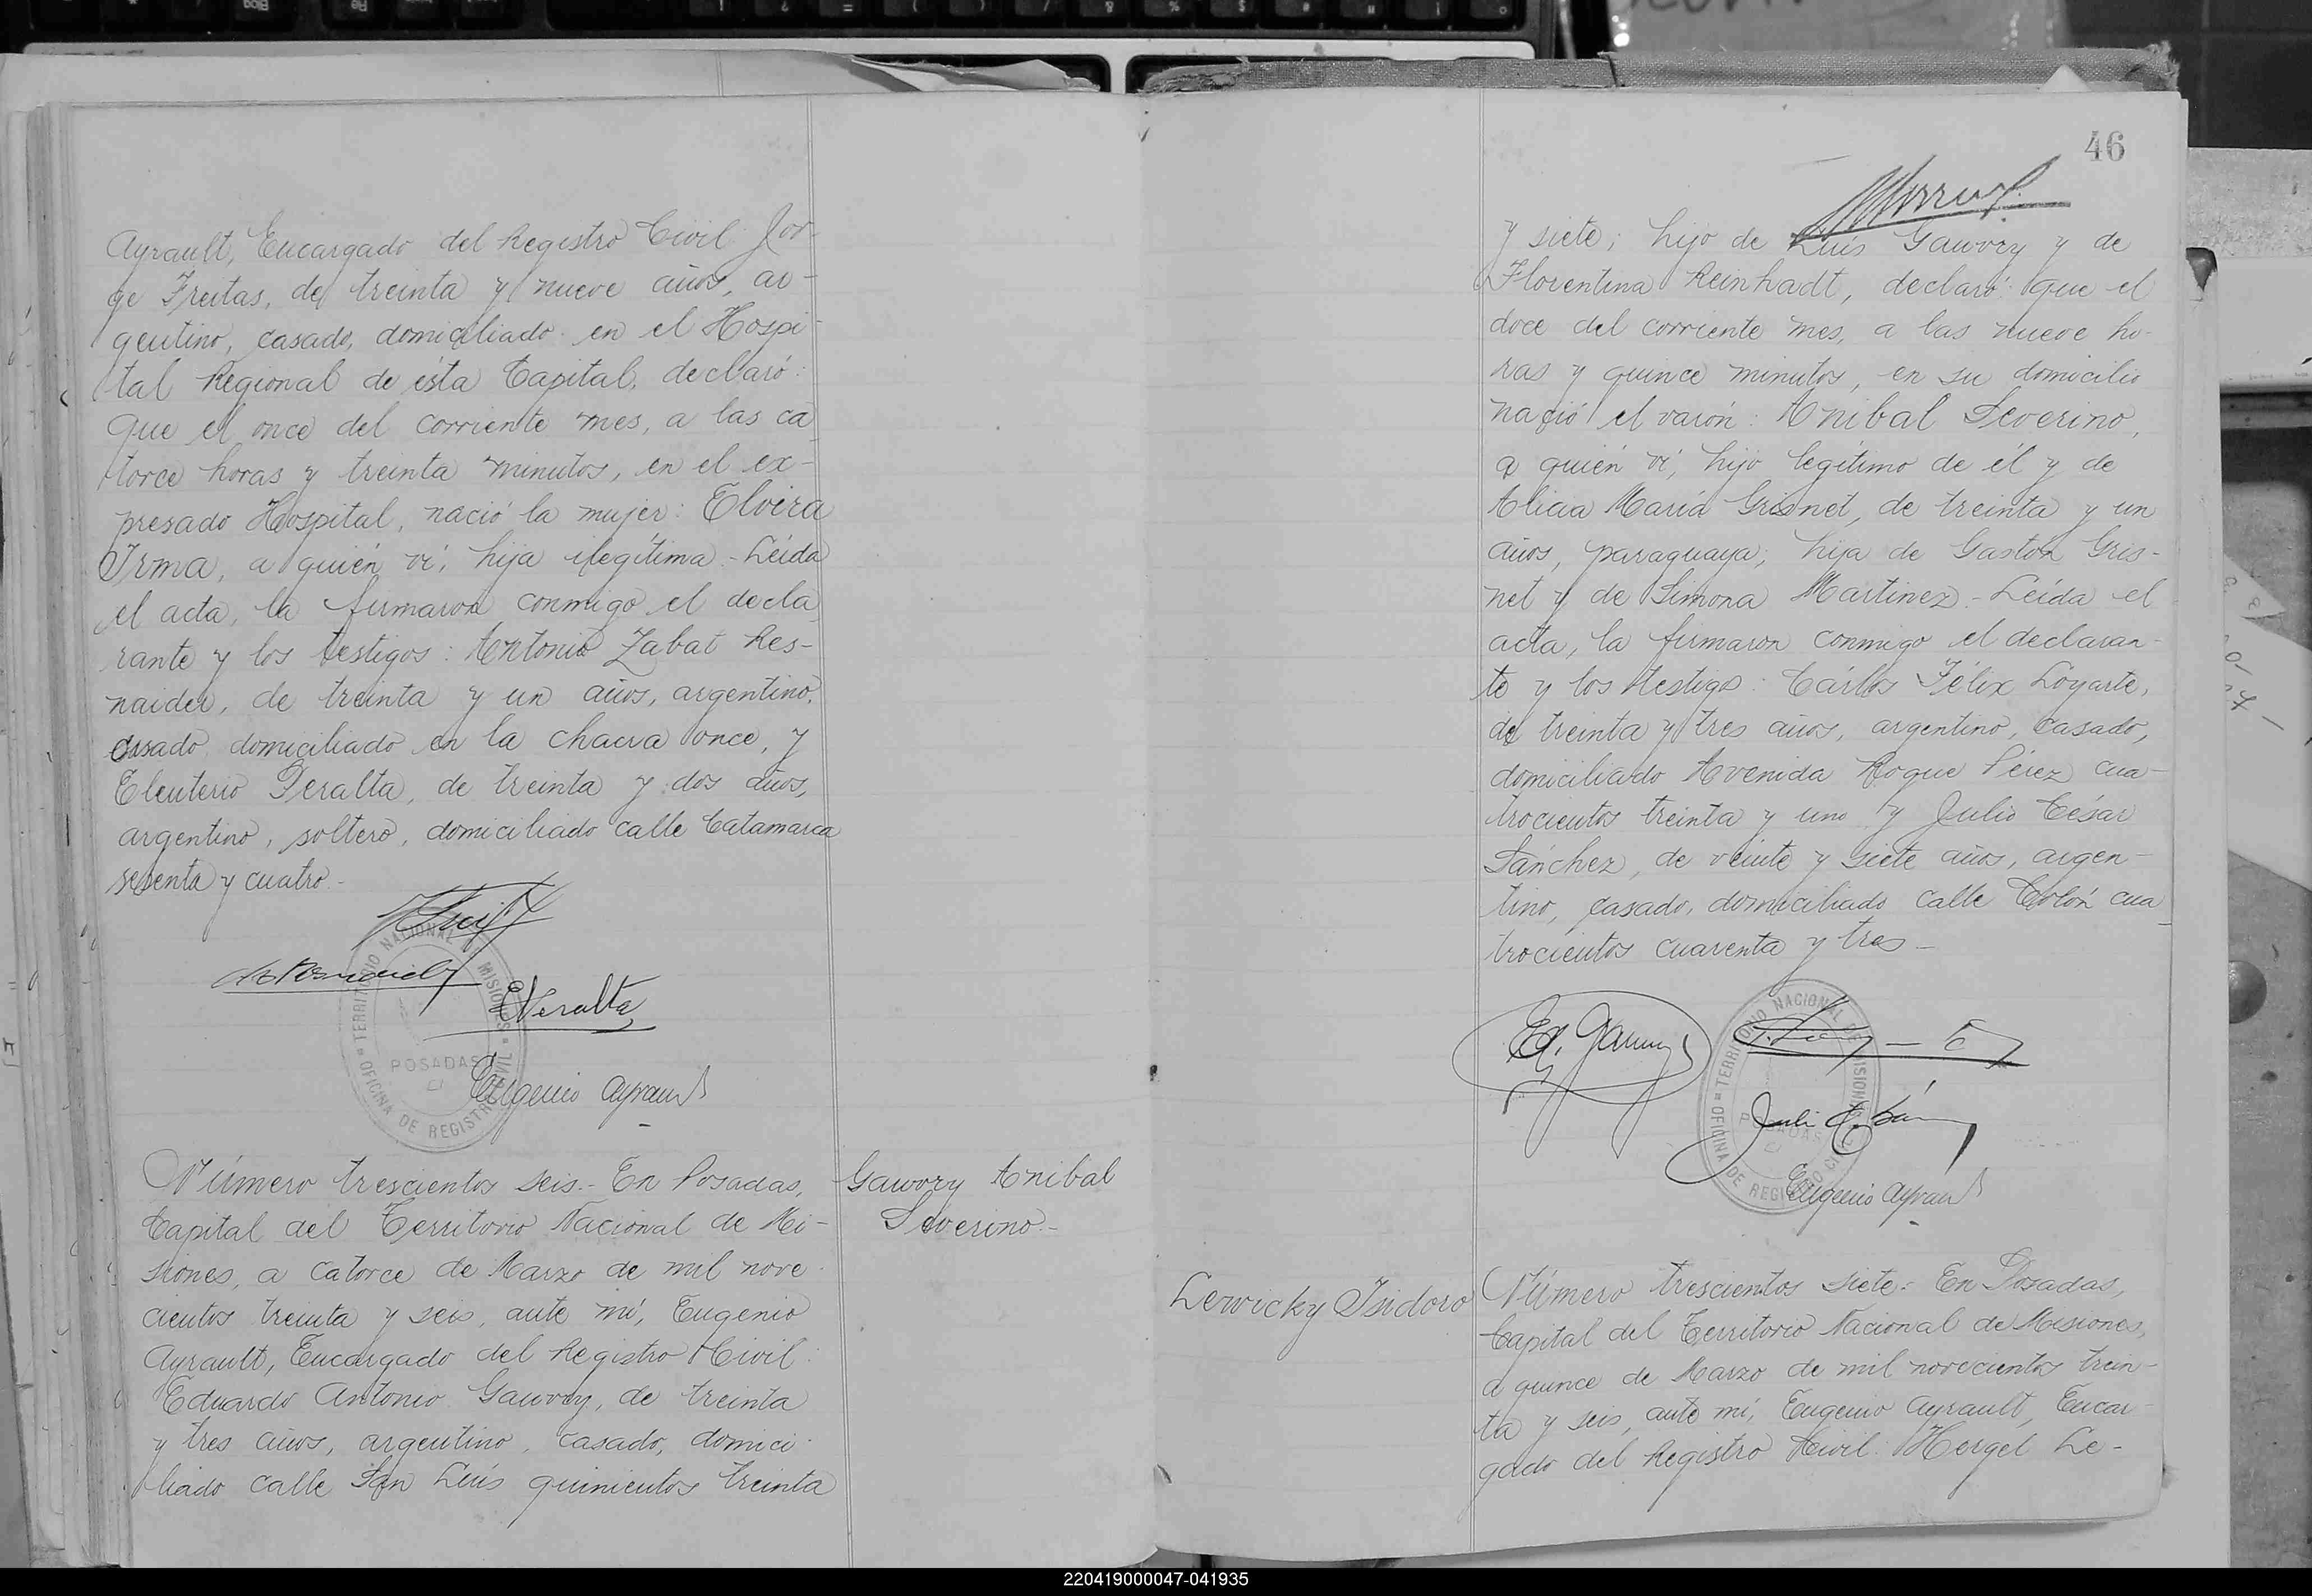 Ayrault, Encargado del Registro Civil: Jor-
ge Freitas, de treinta y nueve años, ar-
gentino, casado, domiciliado en el Hospi-
tal Regional de ésta Capital, declaró:
Que el once del corriente mes, a las ca
torce horas y treinta minutos, en el ex-
presado Hospital, nació la mujer: Elvira
Irma, a quién ví, hija ilegítima.- Leída
el acta, la firmaron conmigo el decla
rante y los testigos: Antonio Zabat Res-
naider, de treinta y un años, argentino,
casado, domiciliado en la chacra once, y
Eleuterio Peralta, de treinta y dos años,
argentino, soltero, domiciliado calle Catamarca
y cuatro.-
EPeralta
TERRITORIO NACIONAL MISIONES
POSADAS
OFICINA DE REGISTRO CIVIL
Eugenio Ayrault
Número trescientos seis.- En Posadas,
Capital del Territorio Nacional de Mi-
siones, a catorce de Marzo de mil nove
cientos treinta y seis, ante mí, Eugenio
Ayrault, Encargado del Registro Civil:
Eduardo Antonio Gawory, de treinta
y tres años, argentino, casado, domici-
liado calle San Luís quinientos treinta
Gawory Anibal
Severino.-
46
y siete; hijo de Luís Gawory y de
Florentina Reinhadt, declaró: que el
doce del corriente mes, a las nueve ho-
ras y quince minutos, en su domicilio
nació el varón: Anibal Severino,
a quién ví, hijo legítimo de él y de
Alicia María Grisnet, de treinta y un
años, paraguaya; hija de Gastón Gris-
net y de Simona Martinez.- Leída el
acta, la firmaron conmigo el declaran-
te y los testigos: Cárlos Félix Loyarte,
de treinta y tres años, argentino, casado,
domiciliado Avenida Roque Pérez cua-
trocientos treinta y uno y Julio César
Sánchez, de veinte y siete años, argen-
tino, casado, domiciliado calle Colón cua
trocientos cuarenta y tres.-
Ed. Gawory
TERRITORIO NACIONAL DE MISIONES
POSADAS
OFICINA DE REGISTRO CIVIL
Eugenio Ayrault
Lewicky Isidoro
Número trescientos siete.- En Posadas,
Capital del Territorio Nacional de Misiones,
a quince de Marzo de mil novecientos trein-
ta y seis, ante mí, Eugenio Ayrault, Encar-
gado del Registro Civil: Hergel Le-
220419000047-041935